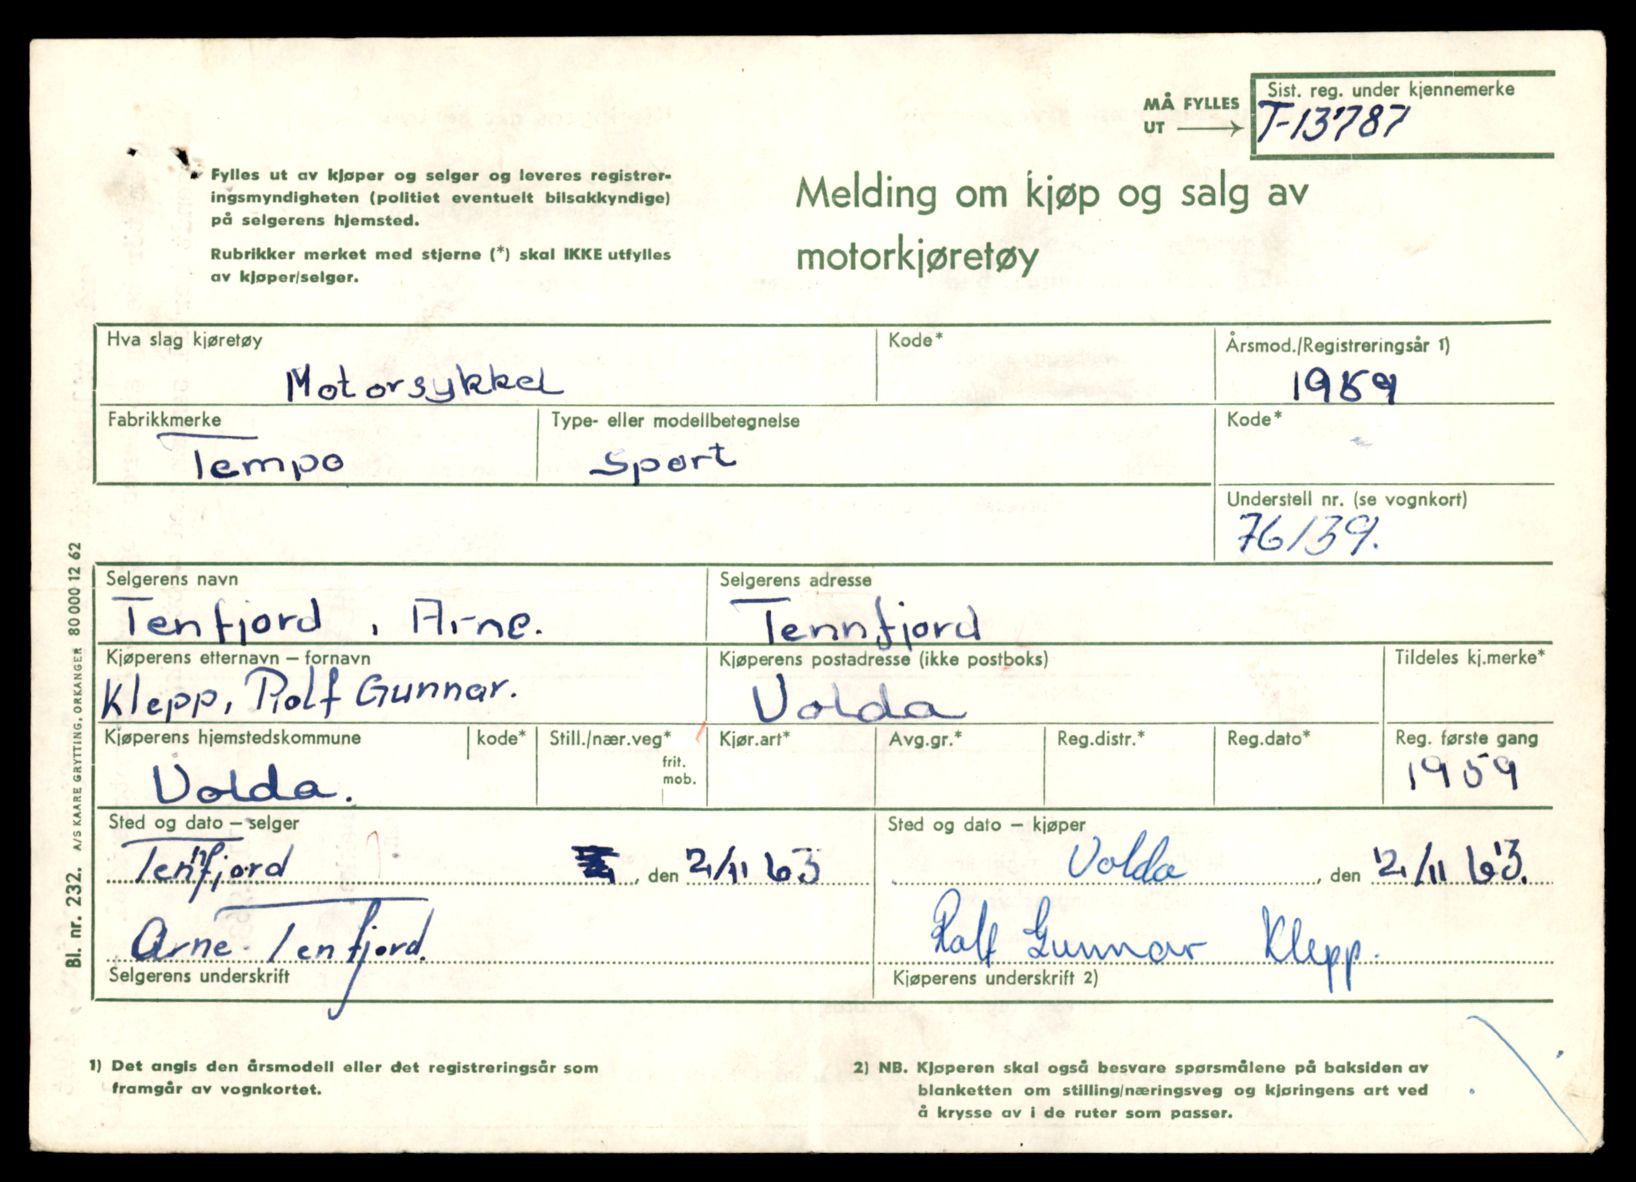 MÅ FYLLES
UT
Sist. reg. under kjennemerke
T-13787
Fylles ut av kjøper og selger og leveres registrer-
ingsmyndigheten (politiet eventuelt bilsakkyndige)
på selgerens hjemsted.
Rubrikker merket med stjerne (*) skal IKKE utfylles
av kjøper/selger.
Melding om kjøp og salg av
motorkjøretøy
Hva slag kjøretøy
Kode*
Årsmod./Registreringsår 1)
Motorsykkel
1959
Fabrikkmerke
Type- eller modellbetegnelse
Kode*
Tempo
Sport
Understell nr. (se vognkort)
76139.
Selgerens navn
Selgerens adresse
Tenfjord, Arne.
Tennfjord
Kjøperens etternavn – fornavn
Kjøperens postadresse (ikke postboks)
Tildeles kj.merke*
Klepp, Rolf Gunnar.
Volda
Kjøperens hjemstedskommune
kode*
Still./nær.veg*
frit.
mob.
Kjør.art*
Avg.gr.*
Reg.distr.*
Reg.dato*
Reg. første gang
Volda.
1959
Sted og dato – selger
Sted og dato – kjøper
Tennfjord , den 2/11 63
Volda , den 2/11 63.
Arne Tenfjord.
Rolf Gunnar Klepp.
Selgerens underskrift
Kjøperens underskrift 2)
1) Det angis den årsmodell eller det registreringsår som
framgår av vognkortet.
2) NB. Kjøperen skal også besvare spørsmålene på baksiden av
blanketten om stilling/næringsveg og kjøringens art ved
å krysse av i de ruter som passer.
Bl. nr. 232. A/S KAARE GRYTTING, ORKANGER 80 000 12 62